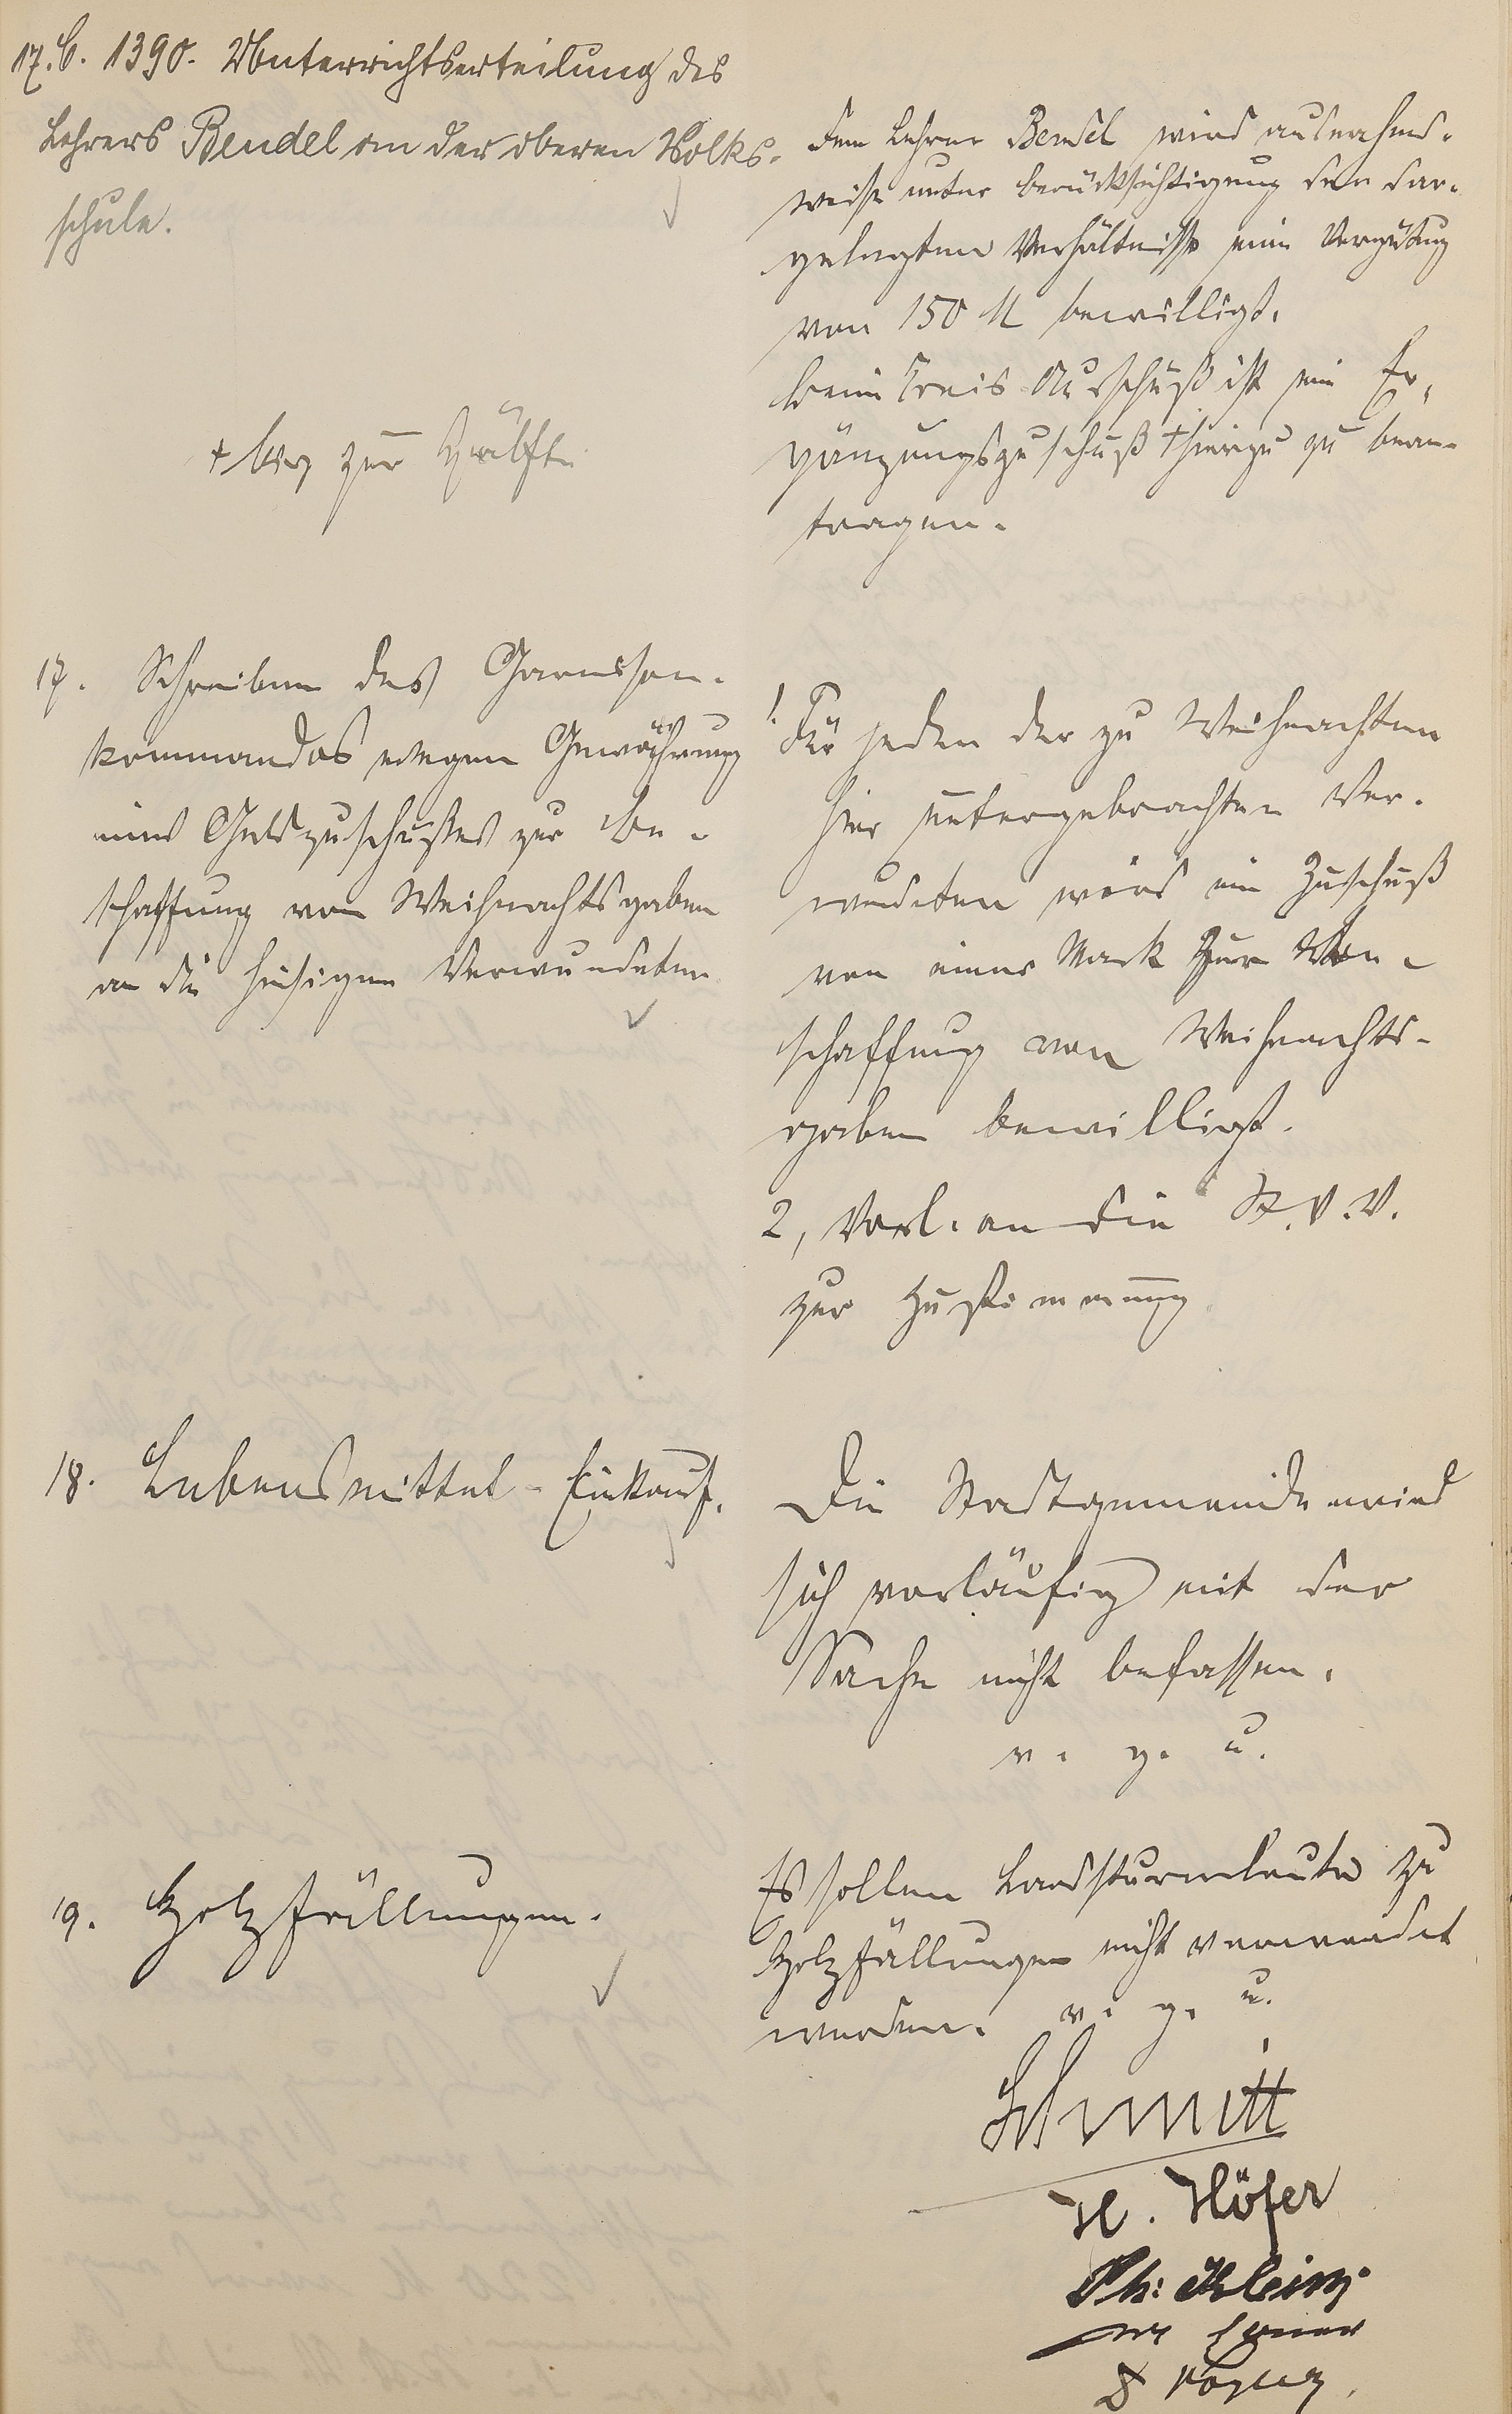 17. C. 1390. Unterrichtserteilung des
Lehrers Bendel an der oberen Volks-
schule.
Dem Lehrer Bendel wird ausnahms-
weise unter Berücksichtigung der dar-
gelegten Verhältnisse eine Vergütung
von 150 M bewilligt.
Beim Kreis-Ausschuß ist ein Er-
gänzungszuschuß + hierzu zu bean-
tragen.
+ bis zur Hälfte
17. Schreiben des Garnison-
kommandos wegen Gewährung
eines Geldzuschusses zur Be-
schaffung von Weihnachtsgaben
an die hiesigen Verwundeten
1. Für jeden der zu Weihnachten
hier untergebrachten Ver-
wundeten wird ein Zuschuß
von einer Mark zur Be-
schaffung von Weihnachts-
gaben bewilligt.
2, Vorl. an die St.V.V.
zur Zustimmung
18. Lebensmittel-Einkauf.
Die Stadtgemeinde wird
sich vorläufig mit der
Sache nicht befassen.
v. g. u.
19. Holzfällungen.
Es sollen Landsturmleute zu
Holzfällungen nicht verwendet
werden. v. g. u.
Schmitt
H. Höfer
Ph. Klein